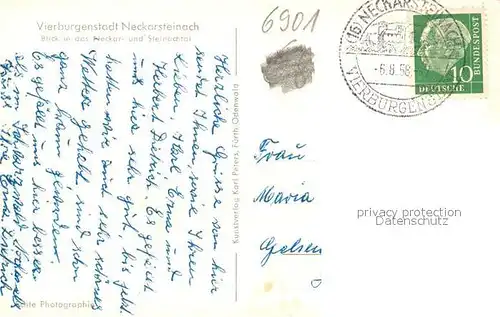 Vierburgenstadt Neckarsteinach
Blick in das Neckar- und Steinachtal
Herzliche Grüsse von hier
sendet Ihnen, sowie Ihren
Lieben, Karl Erna und
Herbert Dietrich. Es gefällt
uns hier sehr gut, bis jetzt
hatten wir auch sehr schönes
Wetter gehabt, sind schon
ganz braun geworden.
Es gefällt uns hier besser
als im Schwarzwald. Nochmals
Ihre Erna Dietrich
Echte Photographie
Kunstverlag Karl Peters, Fürth Odenwald
6901
(16) NECKARSTEINACH
-6.8.58
VIERBURGEN
10
DEUTSCHE
BUNDESPOST
Frau
Maria
Gelsen
privacy protection
Datenschutz